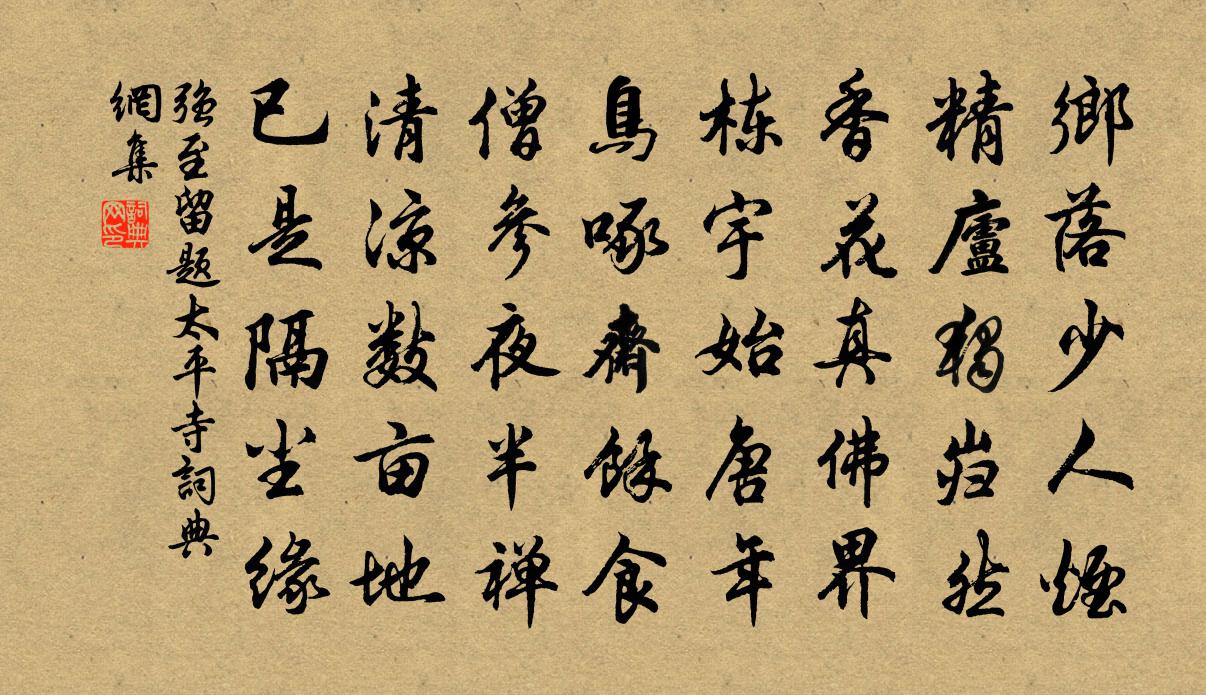 鄉落少人煙
精廬獨岿然
香花真佛界
栋宇始唐年
鳥啄齋餘食
僧參夜半禅
清涼數亩地
已是隔尘緣
強至留題太平寺詞典
網集
詞典
网印